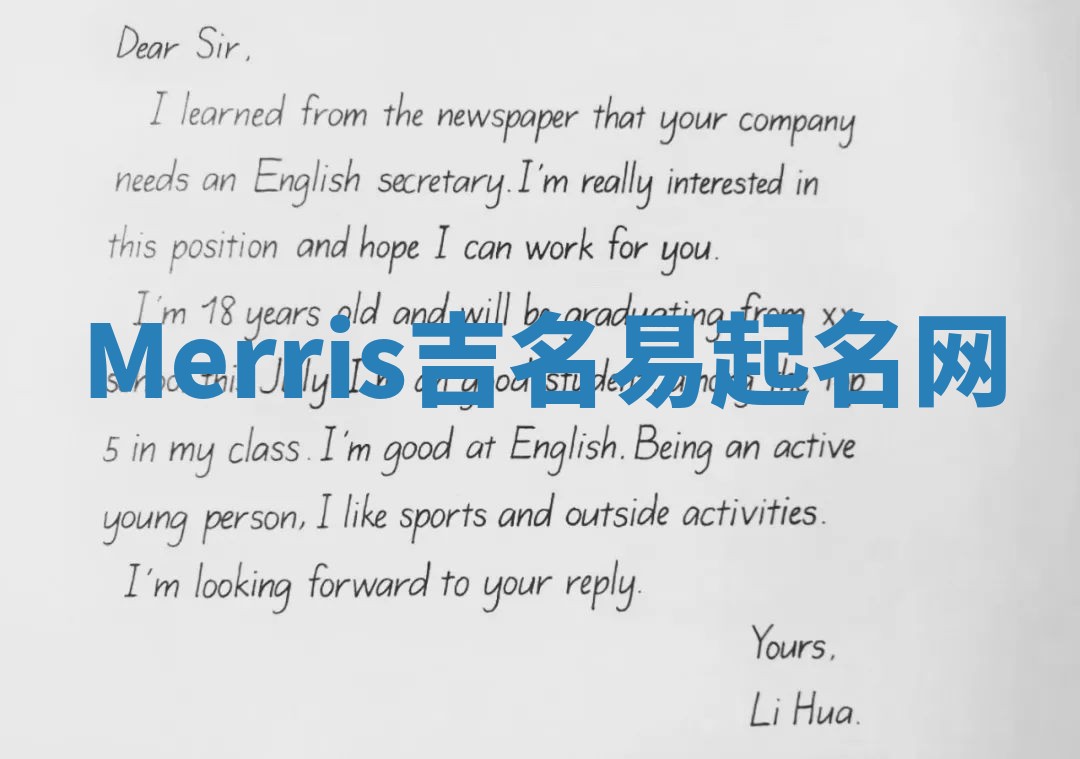 Dear Sir,
I learned from the newspaper that your company
needs an English secretary. I'm really interested in
this position and hope I can work for you.
I'm 18 years old and will be graduating from xx
Merris吉名易起名网
this July. I'm good student among the top
5 in my class. I'm good at English. Being an active
young person, I like sports and outside activities.
I'm looking forward to your reply.
Yours,
Li Hua.